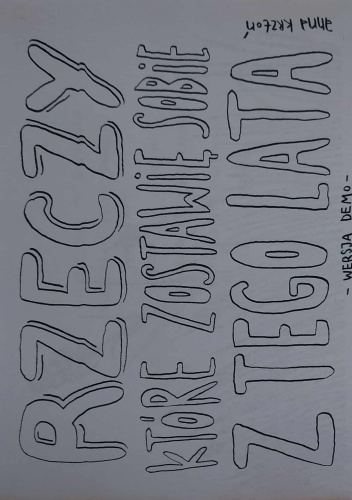 RZECZY
KTÓRE ZOSTAWIĘ SOBIE
Z TEGO LATA
- WERSJA DEMO -
anna krztoń